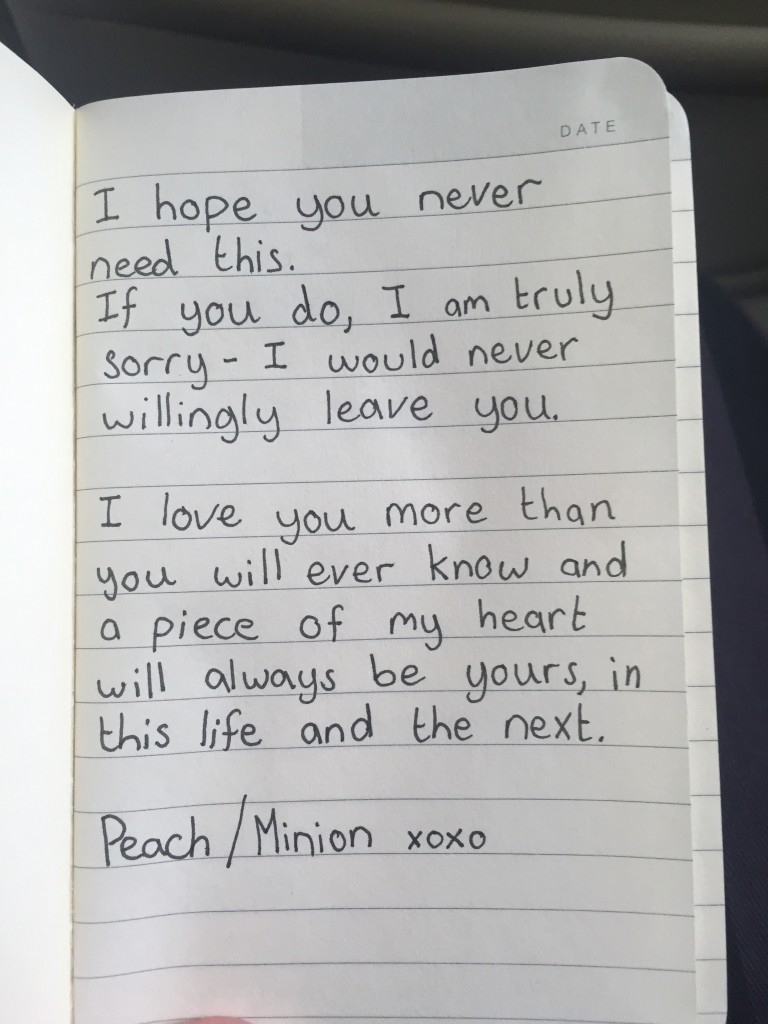 DATE
I hope you never
need this.
If you do, I am truly
sorry - I would never
willingly leave you.
I love you more than
you will ever know and
a piece of my heart
will always be yours, in
this life and the next.
Peach / Minion xoxo